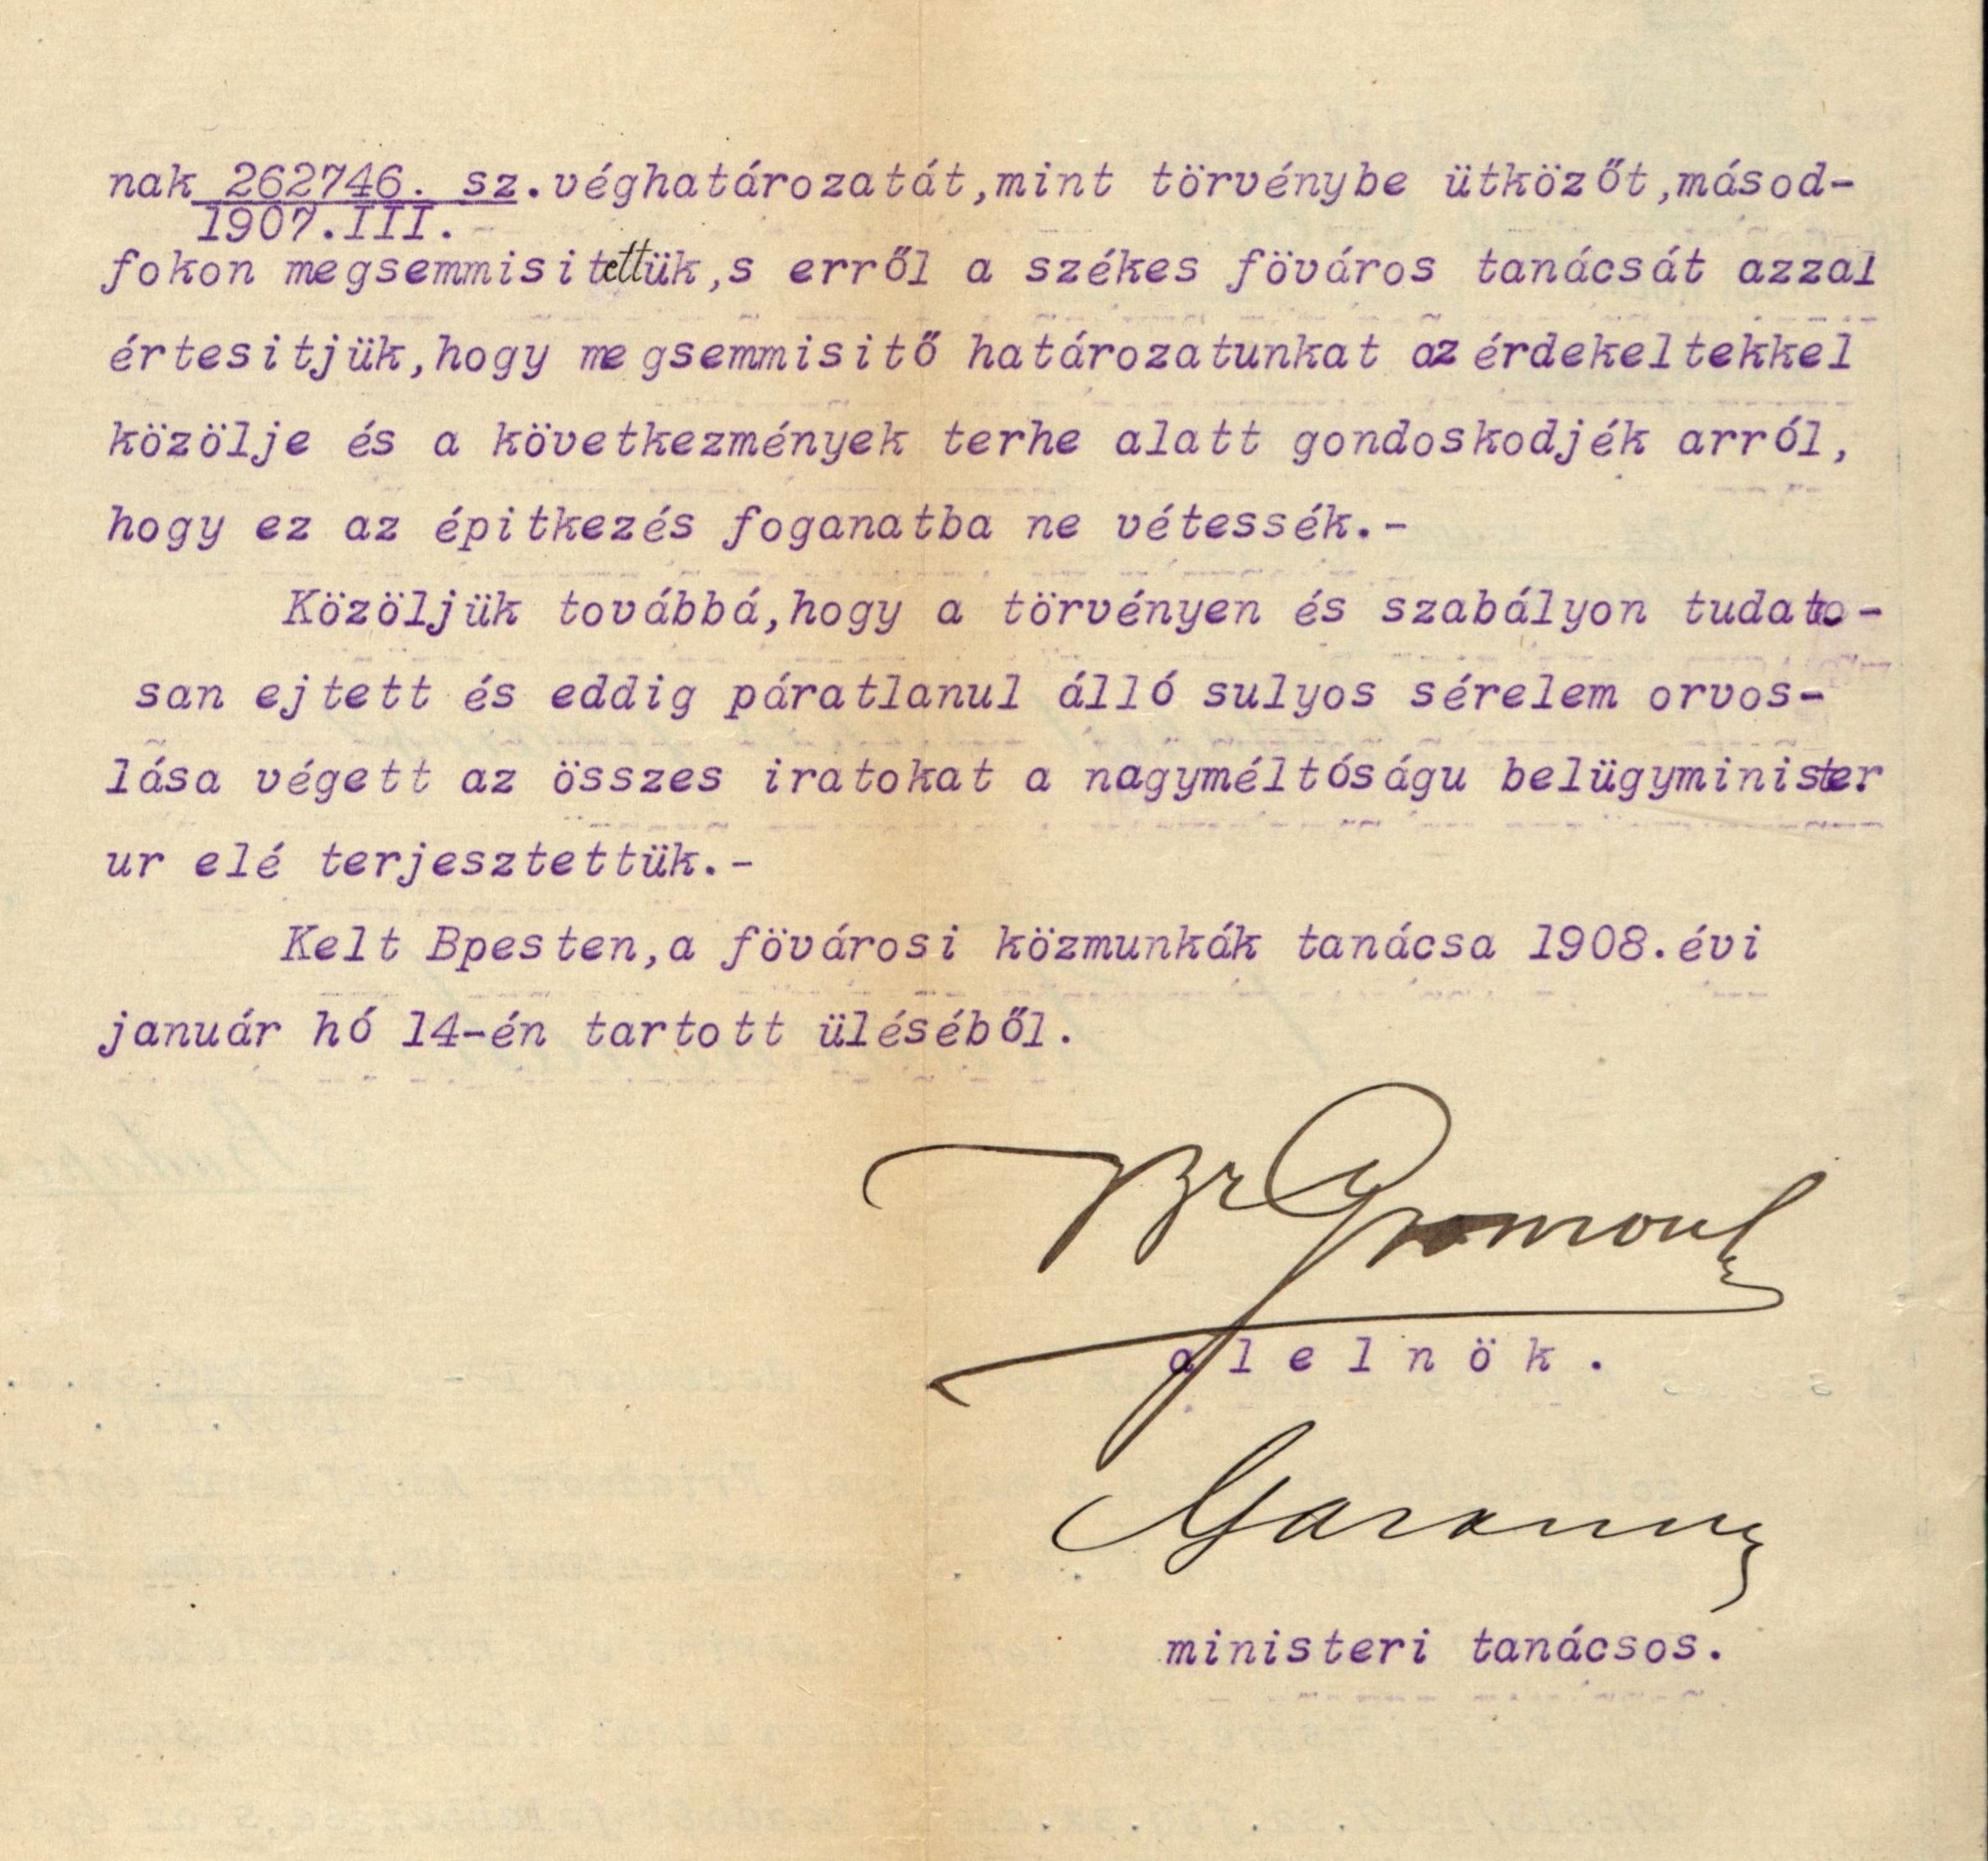 nak 262746. sz. véghatározatát,mint törvénybe ütközőt,másod-
1907.III.
fokon megsemmisitettük,s erről a székes föváros tanácsát azzal
értesitjük,hogy megsemmisitő határozatunkat az érdekeltekkel
közölje és a következmények terhe alatt gondoskodjék arról,
hogy ez az épitkezés foganatba ne vétessék.-
Közöljük továbbá,hogy a törvényen és szabályon tudato-
san ejtett és eddig páratlanul álló sulyos sérelem orvos-
lása végett az összes iratokat a nagyméltóságu belügyminister
ur elé terjesztettük.-
Kelt Bpesten,a fövárosi közmunkák tanácsa 1908.évi
január hó 14-én tartott üléséből.
alelnök.
ministeri tanácsos.